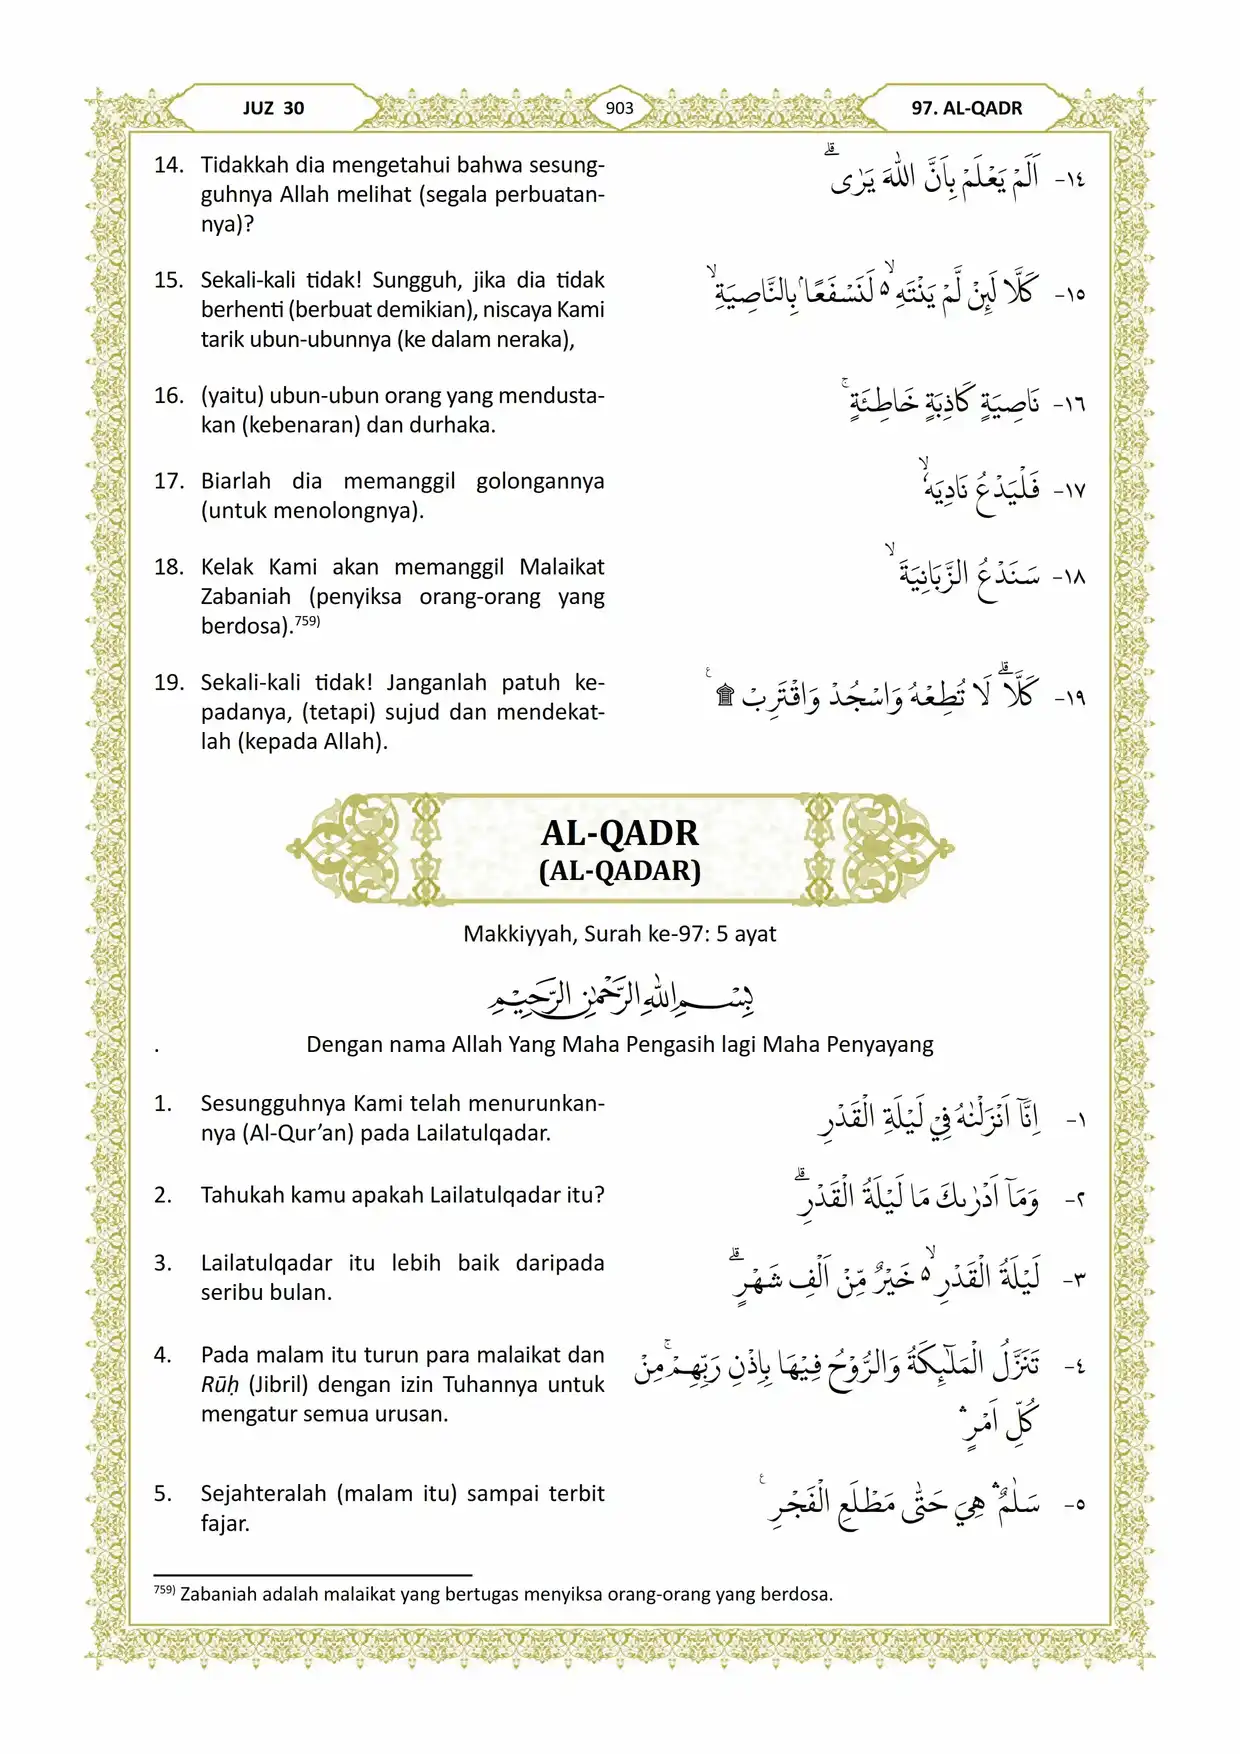 JUZ 30
903
97. AL-QADR
14. Tidakkah dia mengetahui bahwa sesung-
guhnya Allah melihat (segala perbuatan-
nya)?
١٤- اَلَمْ يَعْلَمْ بِاَنَّ اللّٰهَ يَرٰىۗ
15. Sekali-kali tidak! Sungguh, jika dia tidak
berhenti (berbuat demikian), niscaya Kami
tarik ubun-ubunnya (ke dalam neraka),
١٥- كَلَّا لَىِٕنْ لَّمْ يَنْتَهِ ەۙ لَنَسْفَعًاۢ بِالنَّاصِيَةِۙ
16. (yaitu) ubun-ubun orang yang mendusta-
kan (kebenaran) dan durhaka.
١٦- نَاصِيَةٍ كَاذِبَةٍ خَاطِئَةٍۚ
17. Biarlah dia memanggil golongannya
(untuk menolongnya).
١٧- فَلْيَدْعُ نَادِيَهٗۙ
18. Kelak Kami akan memanggil Malaikat
Zabaniah (penyiksa orang-orang yang
berdosa).759)
١٨- سَنَدْعُ الزَّبَانِيَةَۙ
19. Sekali-kali tidak! Janganlah patuh ke-
padanya, (tetapi) sujud dan mendekat-
lah (kepada Allah).
١٩- كَلَّاۗ لَا تُطِعْهُ وَاسْجُدْ وَاقْتَرِبْ ۩ ࣖ
AL-QADR
(AL-QADAR)
Makkiyyah, Surah ke-97: 5 ayat
بِسْمِ اللّٰهِ الرَّحْمٰنِ الرَّحِيْمِ
. Dengan nama Allah Yang Maha Pengasih lagi Maha Penyayang
1. Sesungguhnya Kami telah menurunkan-
nya (Al-Qur’an) pada Lailatulqadar.
١- اِنَّآ اَنْزَلْنٰهُ فِيْ لَيْلَةِ الْقَدْرِ
2. Tahukah kamu apakah Lailatulqadar itu?
٢- وَمَآ اَدْرٰىكَ مَا لَيْلَةُ الْقَدْرِۗ
3. Lailatulqadar itu lebih baik daripada
seribu bulan.
٣- لَيْلَةُ الْقَدْرِ ەۙ خَيْرٌ مِّنْ اَلْفِ شَهْرٍۗ
4. Pada malam itu turun para malaikat dan
Rūḥ (Jibril) dengan izin Tuhannya untuk
mengatur semua urusan.
٤- تَنَزَّلُ الْمَلٰۤىِٕكَةُ وَالرُّوْحُ فِيْهَا بِاِذْنِ رَبِّهِمْۚ مِنْ
كُلِّ اَمْرٍۛ
5. Sejahteralah (malam itu) sampai terbit
fajar.
٥- سَلٰمٌۛ هِيَ حَتّٰى مَطْلَعِ الْفَجْرِ ࣖ
759) Zabaniah adalah malaikat yang bertugas menyiksa orang-orang yang berdosa.